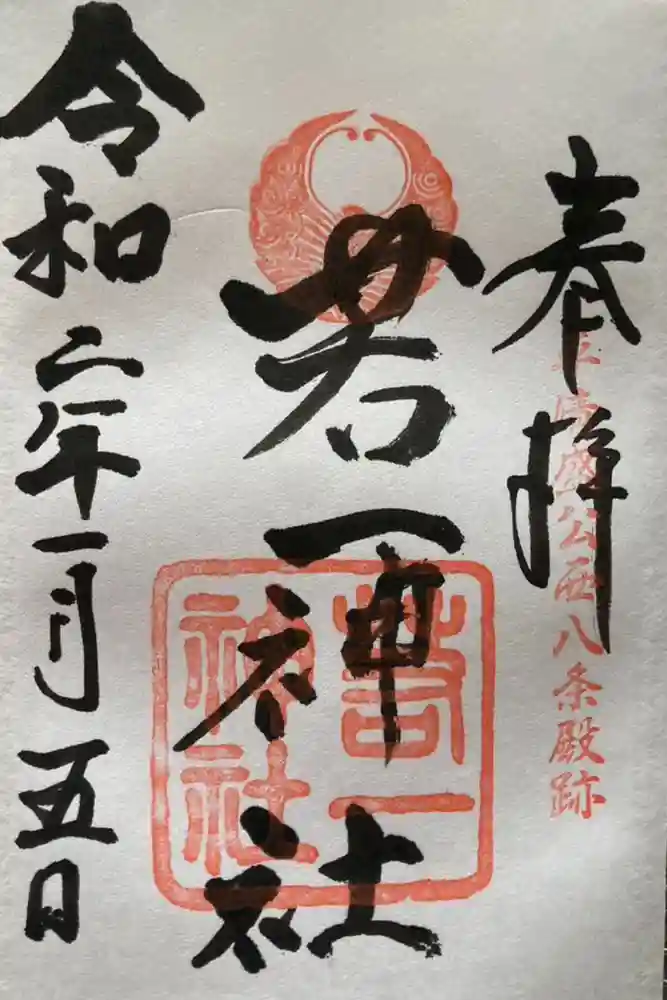 奉拝
平清盛公西八条殿跡
若一神社
若一神社
令和二年一月五日